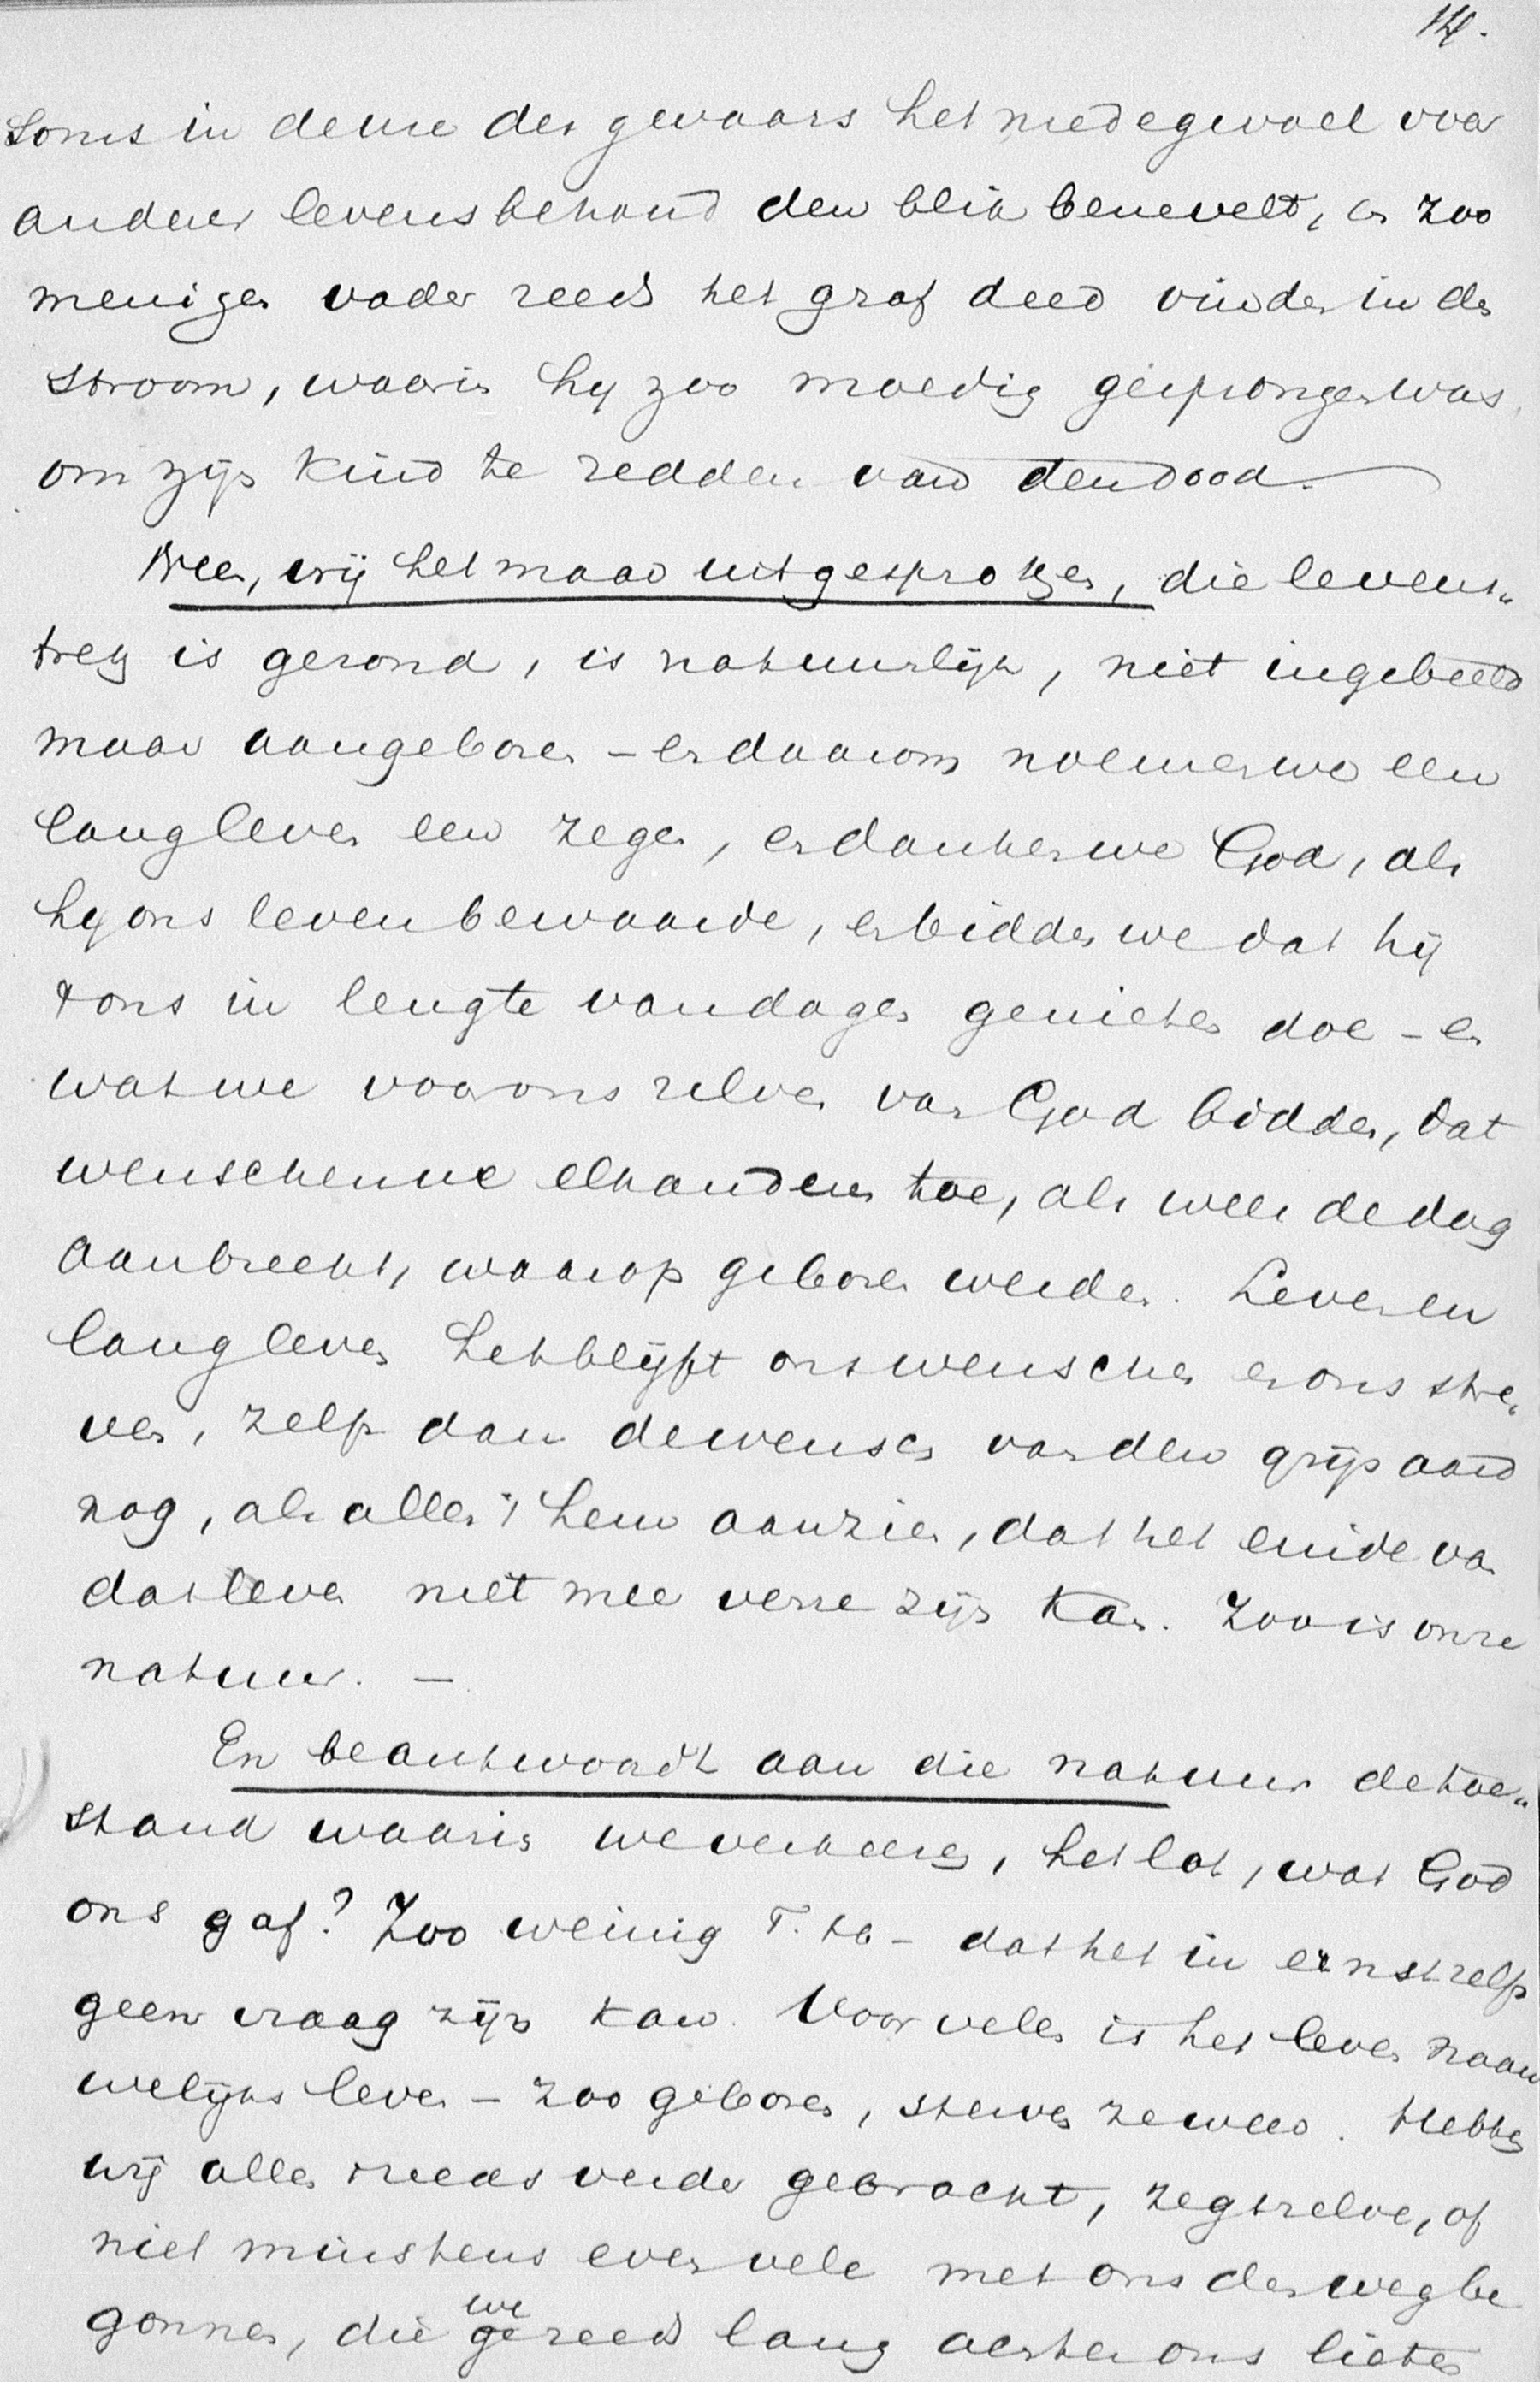 14.
soms in de ure des gevaars het medegevoel voor
anderer levensbehoud den blik benevelt, en zoo
menigen vader reeds het graf deed vinden in den
stroom, waarin hy zoo moedig gesprongen was,
om zijn kind te redden van den dood.
Neen, wij het maar uitgesproken, die levens„
trek is gezond, is natuurlijk, niet ingebeeld
maar aangeboren – en daarom noemen we een
lang leven een zegen, en danken we God, als
hy ons leven bewaarde, en bidden we dat hij
't ons in lengte van dagen genieten doe – en
wat we voor ons zelven van God bidden, dat
wenschen we elkander toe, als weer de dag
aanbreekt, waarop geboren werden. Leven en
lang leven het blijft ons wenschen en ons stre„
ven, zelfs dan de wensch van den grijsaard
nog, als allen 't hem aanzien, dat het einde van
dat leven niet meer verre zijn kan. Zoo is onze
natuur. —
En beantwoordt aan die natuur de toe„
stand waarin we verkeeren, het lot, wat God
ons gaf? Zoo weinig T. h. – dat het in ernst zelfs
geen vraag zijn kan. Voor velen is het leven naau
welijks leven – zoo geboren, sterven ze weer. Hebben
wij allen reeds verder gebracht, zegt zelve, of
niet minstens even vele met ons den weg be
gonnen, die we reeds lang achter ons lieten